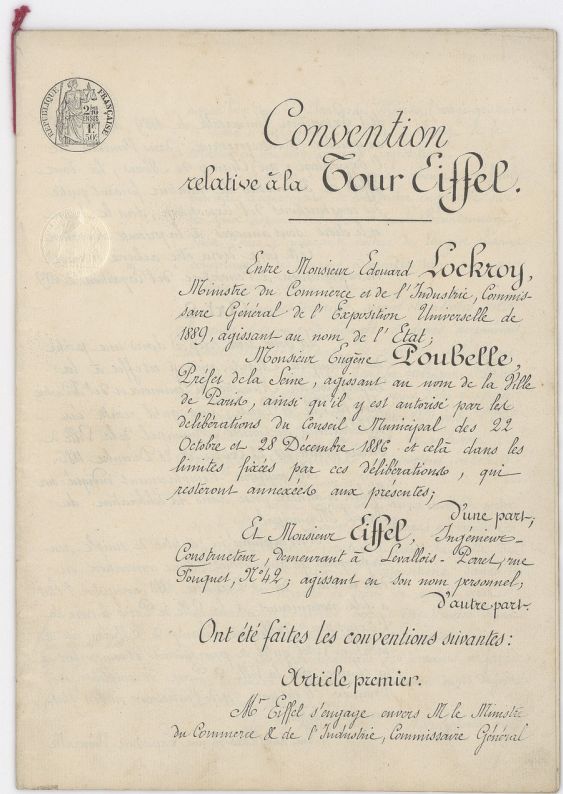 RÉPUBLIQUE FRANÇAISE
Convention
relative à la Tour Eiffel.
Entre Monsieur Edouard Lockroy,
Ministre du Commerce et de l'Industrie, Commis-
saire Général de l'Exposition Universelle de
1889, agissant au nom de l'Etat;
Monsieur Eugène Poubelle,
Préfet de la Seine, agissant au nom de la Ville
de Paris, ainsi qu'il y est autorisé par les
délibérations du Conseil Municipal des 22
Octobre et 28 Décembre 1886 et celà dans les
limites fixées par ces délibérations, qui
resteront annexées aux présentes;
D'une part;
Et Monsieur Eiffel, Ingénieur-
Constructeur, demeurant à Levallois-Perret, rue
Fouquet, N° 42; agissant en son nom personnel,
D'autre part.
Ont été faites les conventions suivantes:
Article premier.
Mr Eiffel s'engage envers M le Ministre
du Commerce & de l'Industrie, Commissaire Général